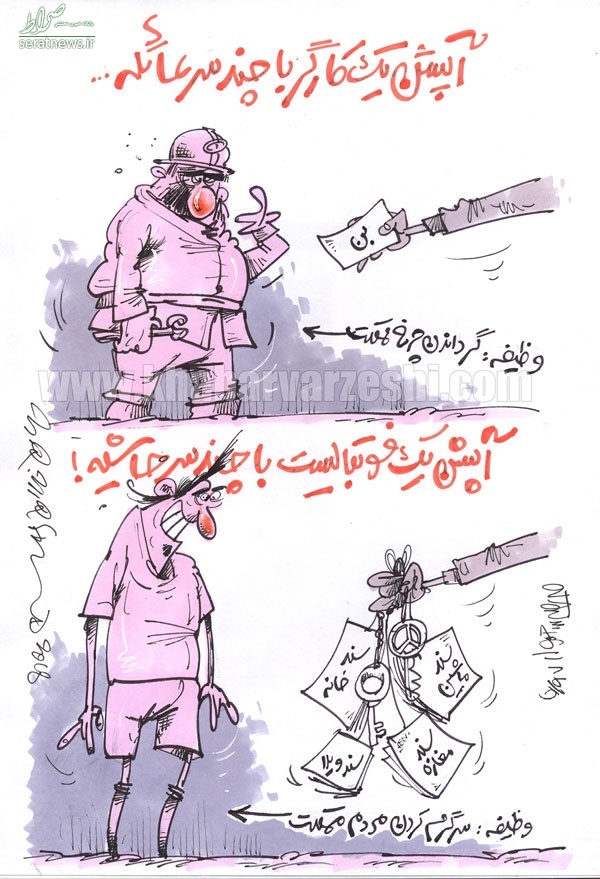 صراط
seratnews.ir
آپشن یک کارگر با چند سر عائله...
بن
وظیفه: گرداندن چرخ مملکت
www.khabarvarzeshi.com
آپشن یک فوتبالیست با چند سر حاشیه!
سند خانه
سند ماشین
سند ویلا
سند مغازه
وظیفه: سرگرم کردن مردم مملکت